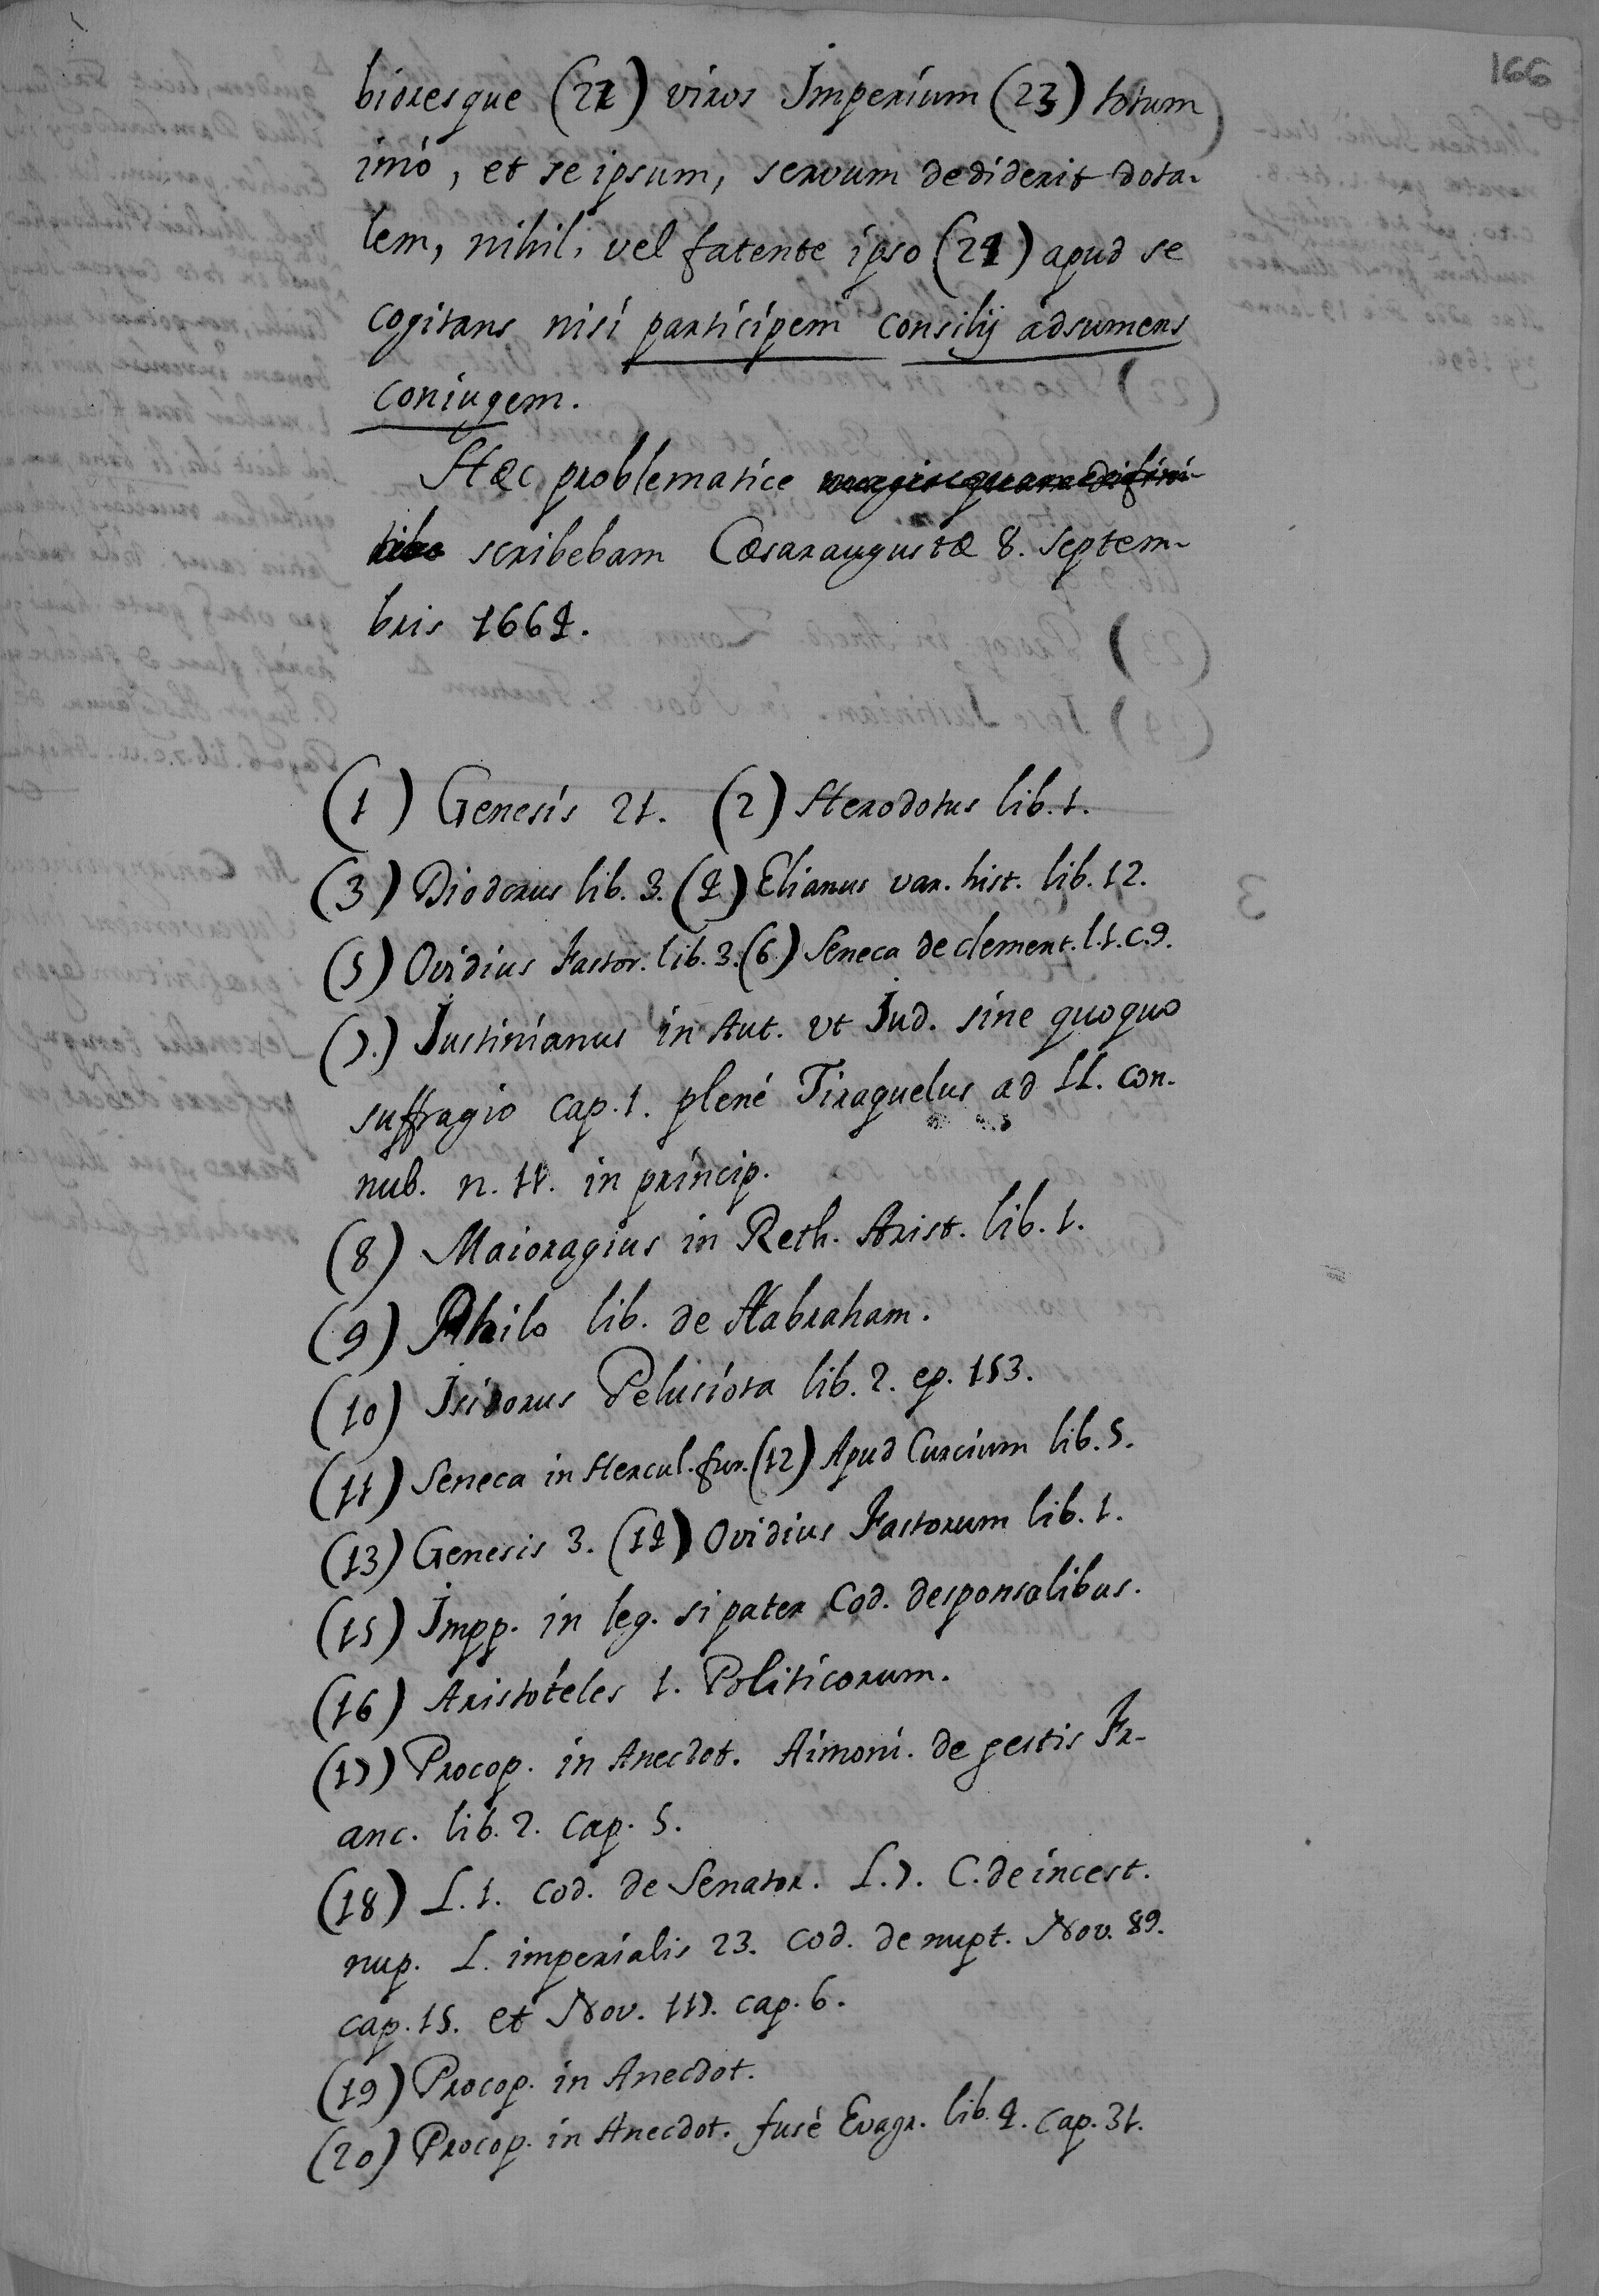 166
bioresque (22) viros Imperium (23) totum
imò, et se ipsum, servum dediderit dota-
lem, nihil, vel fatente ipso (24) apud se
cogitans nisi participem consilij adsumens
coniugem.
Hæc problematice magis quam difini-
tibe scribebam Cæsaraugustæ 8. Septem-
bris 1664.
(1) Genesis 21. (2) Herodotus lib. 1.
(3) Diodorus lib. 3. (4) Elianus var. hist. lib. 12.
(5) Ovidius Fastor. lib. 3. (6) Seneca de clement. l. 1. c. 9.
(7.) Justinianus in Aut. vt Jud. sine quoquo
suffragio cap. 1. plené Tiraquelus ad LL. con-
nub. n. 11. in princip.
(8) Maioragius in Reth. Arist. lib. 1.
(9) Philo lib. de Habraham.
(10) Isidorus Pelusiota lib. 2. ep. 153.
(11) Seneca in Hercul. fur. (12) Apud Curcium lib. 5.
(13) Genesis 3. (14) Ovidius Fastorum lib. 1.
(15) Impp. in leg. si pater Cod. desponsalibus.
(16) Aristóteles 1. Politicorum.
(17) Procop. in Anecdot. Aimoni. de gestis Fr-
anc. lib. 2. Cap. 5.
(18) L. 1. Cod. de Senator. L. 7. C. de incest.
nup. L. imperialis 23. Cod. de nupt. Nov. 89.
cap. 15. et Nov. 117. cap. 6.
(19) Procop. in Anecdot.
(20) Procop. in Anecdot. fusé Evagr. lib. 4. cap. 31.